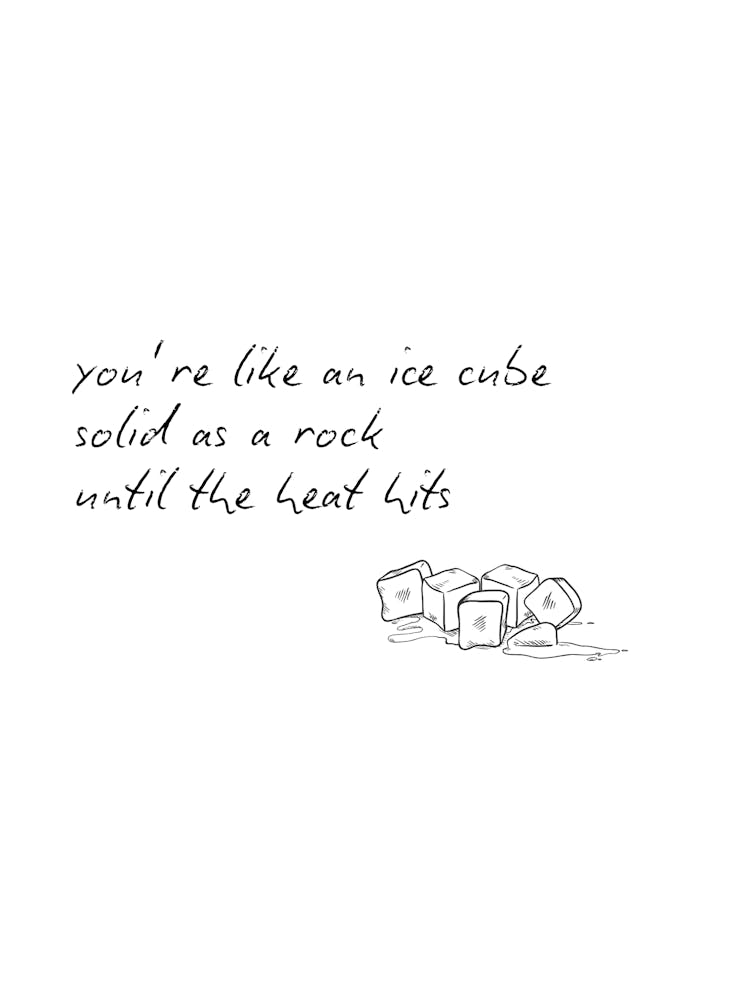 you're like an ice cube
solid as a rock
until the heat hits